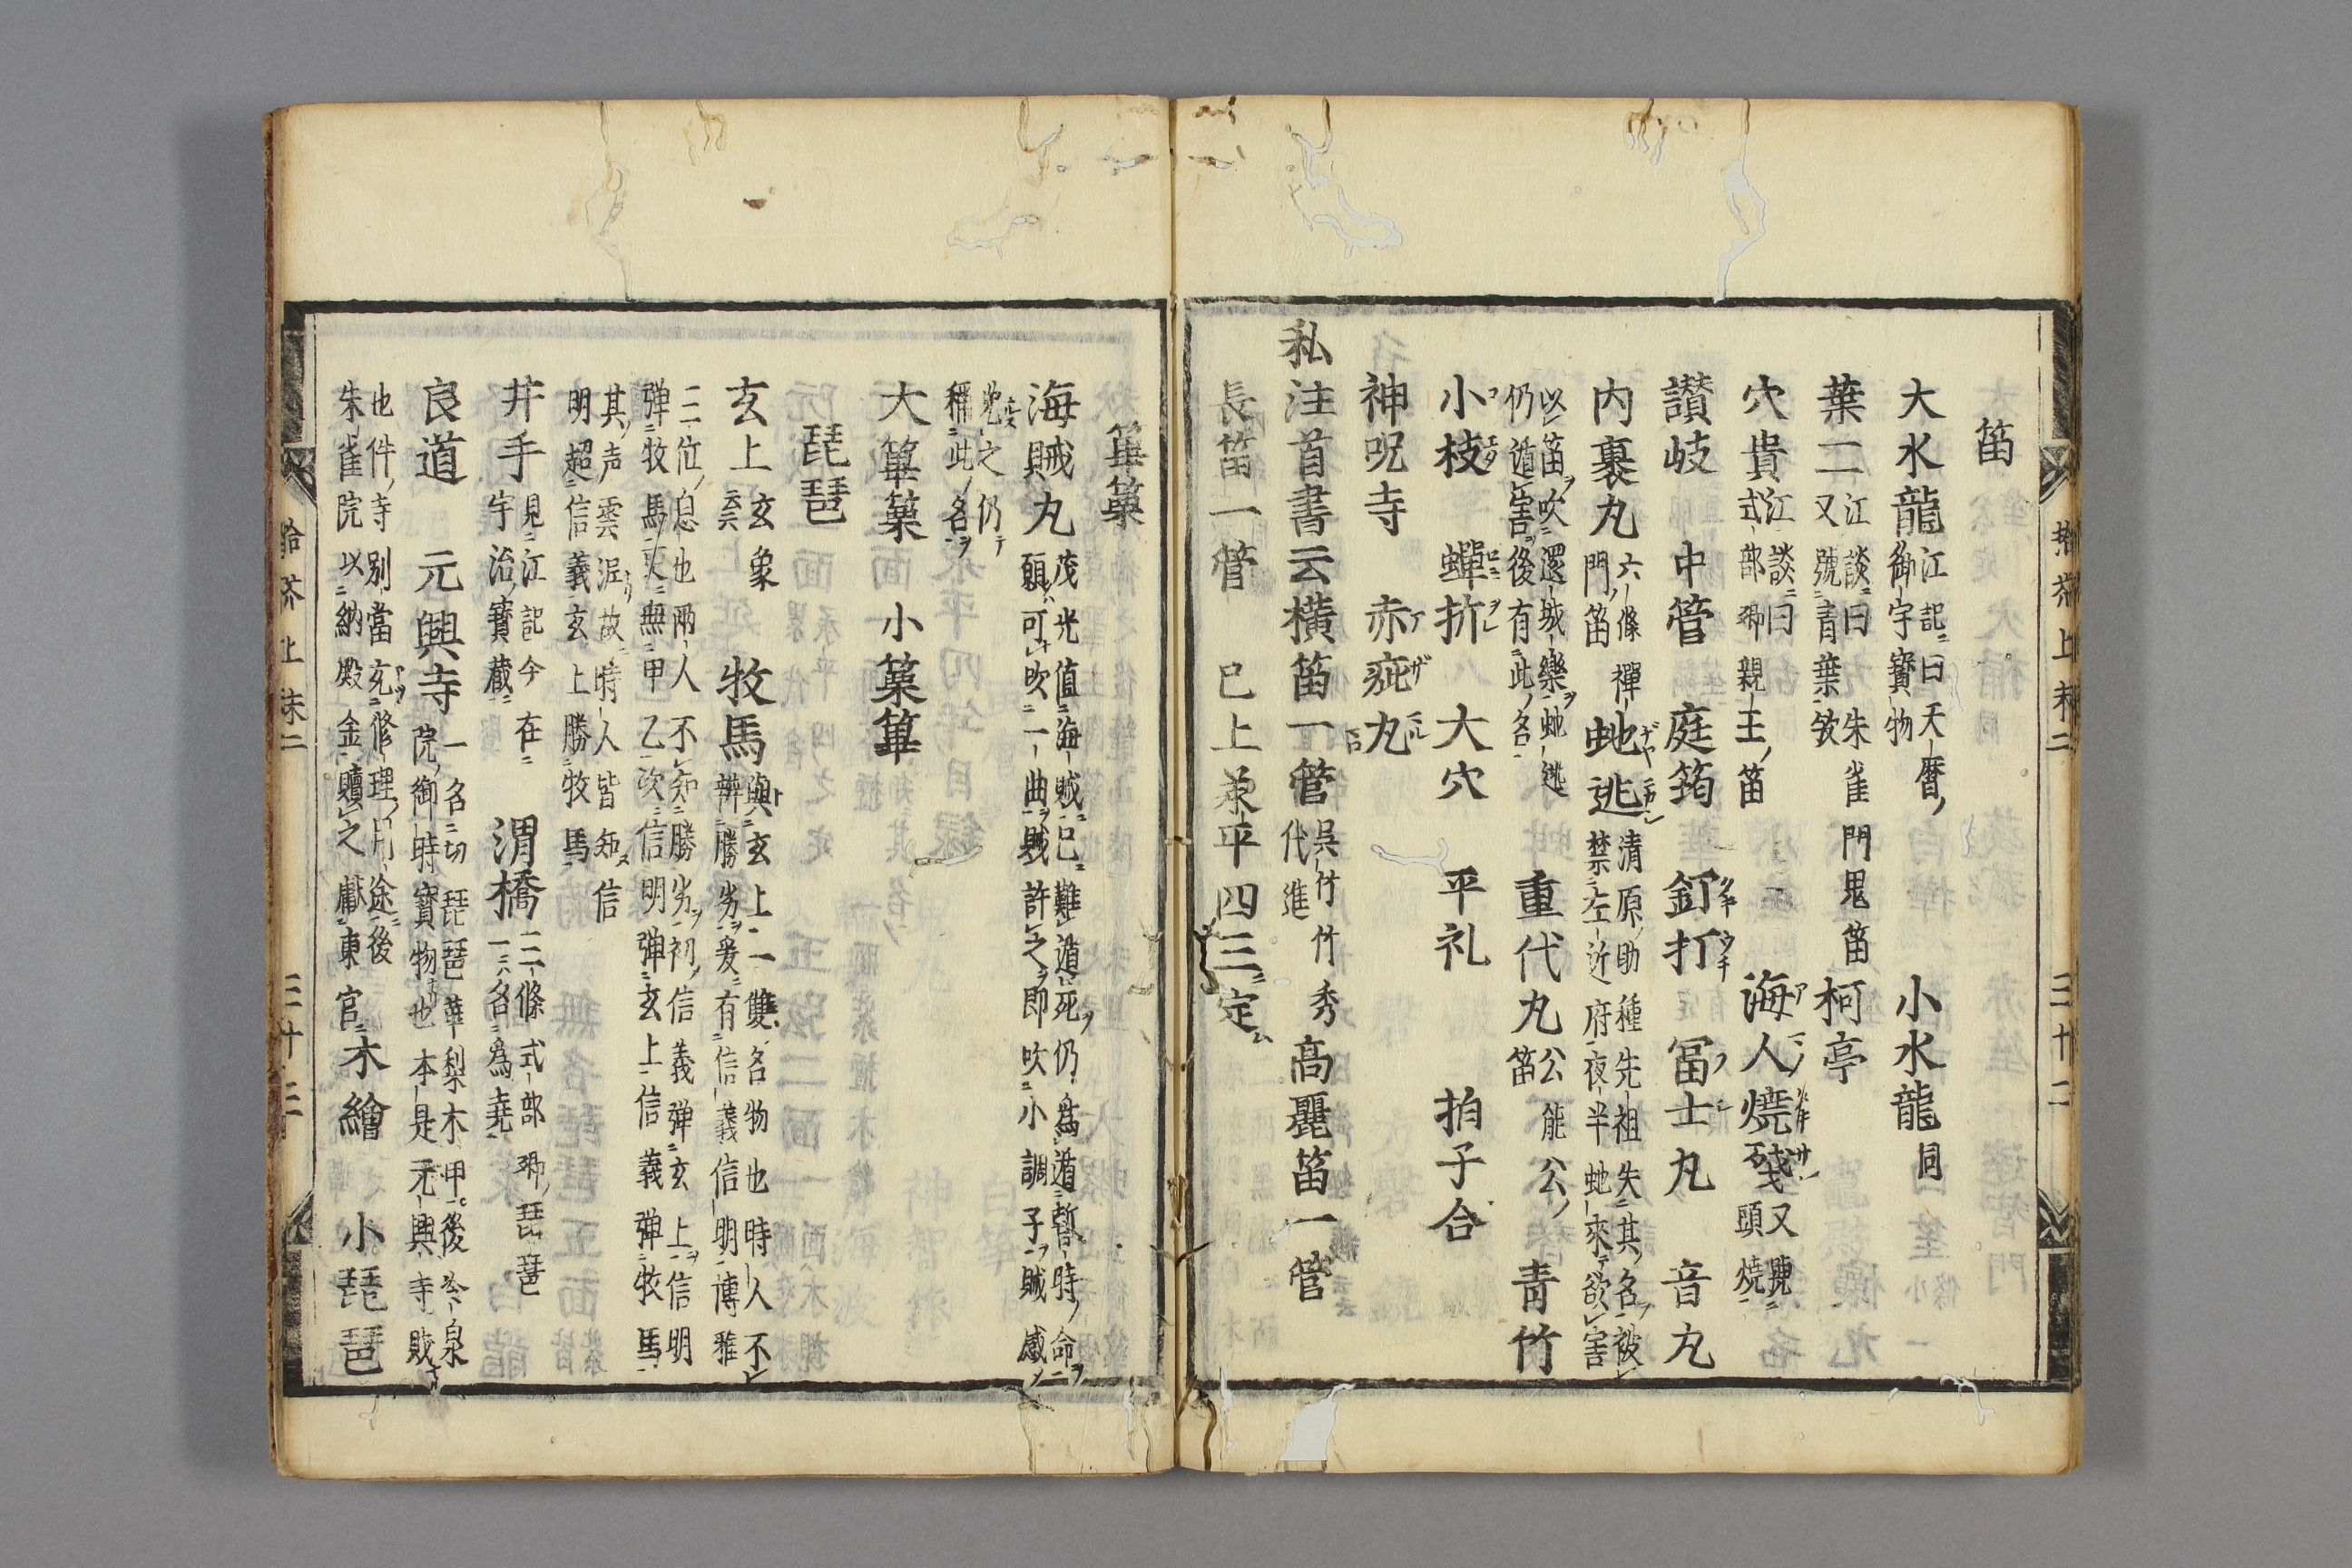 笛
大水龍 江記曰天暦御宇寳物 小水龍 同
葉二 江談曰朱雀門鬼笛又號青葉欤 柯亭
穴貴 江談曰式部卿親王笛 海人焼残 又號頭焼
讃岐 中管 庭筠 釘打 冨士丸 音丸
内裏丸 六條禪門笛 虵逃 清原助種先祖失其名被禁左近府夜半虵來欲害
以笛吹還城樂虵逃仍遁害後有此名 重代丸 公能公笛 青竹
小枝 蟬折 大穴 平礼 拍子合
神呪寺 赤疵丸
私注首書云横笛一管 呉竹竹秀代進 高麗笛一管
長笛一管 已上兼平四三定
拾芥上末二 三十二
篳篥
海賊丸 茂光值海賊已難遁死仍為遁暫時命願可吹一曲賊許之即吹小調子賊感
免之仍稱此名
大篳篥 小篥篳
琵琶
玄上 玄象 云云 牧馬 與玄上一雙名物也時人不辨勝劣爰有信義信明博雅
三位息也兩人不知勝劣初信義弾玄上信明弾牧馬更無甲乙次信明弾玄上信義弾牧馬
其声雲泥故時人皆知信明超信義玄上勝牧馬
井手 見江記今在宇治寳蔵 渭橋 三條式部卿琵琶一名為堯
良道 元興寺 一名切琵琶華梨木甲後冷泉院御時寳物也本是元興寺財
也件寺別當充修理用途後朱雀院以納殿金贖之獻東宮 木繪 小琵琶
拾芥上末二 三十三